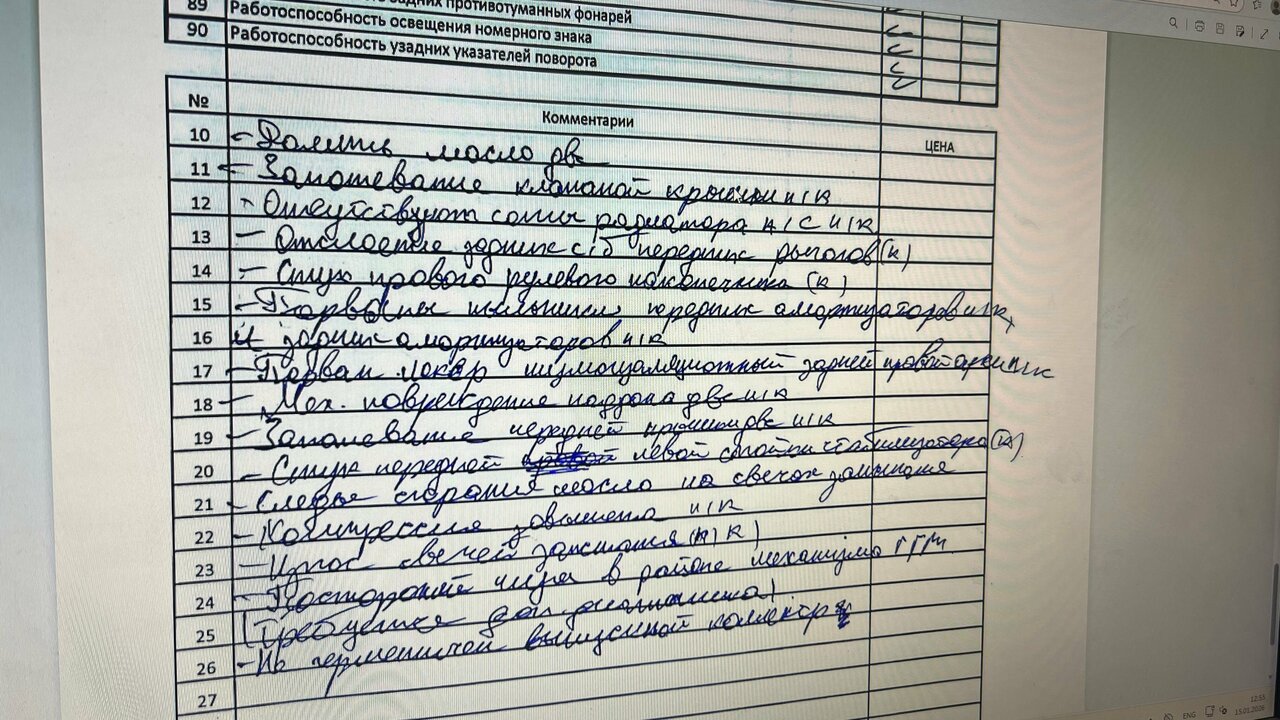 89 задних противотуманных фонарей
Работоспособность освещения номерного знака
90 Работоспособность узадних указателей поворота
№ Комментарии ЦЕНА
10 - Долить масло двс
11 - Запотевание клапаной крышки н/к
12 - Отсутствуют соты радиатора А/С н/к
13 - Отслоение задних с/б передних рычагов (к)
14 - Стук правого рулевого наконечника (к)
15 - Порваны пыльники передних амортизаторов н/к
16 и задних амортизаторов н/к
17 - Порван локер шумоизоляционный задней правой арки н/к
18 - Мех. повреждение поддона двс н/к
19 - Запотевание передней крышки двс н/к
20 - Стук передней левой стойки стабилизатора (к)
21 - Следы сгорания масла на свечах зажигания
22 - Компрессия завышена н/к
23 - Износ свечей зажигания (н/к)
24 - Посторонний шум в районе механизма ГРМ
25 (Требуется доп диагностика)
26 - Не герметичен выпускной коллектор
27
ENG 12:53
15.01.2026